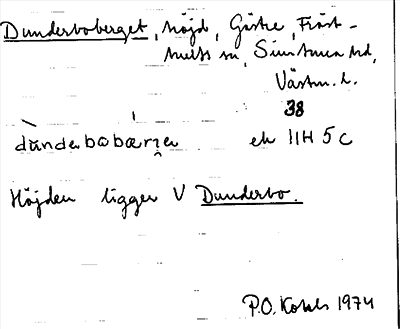 Dunderboberget, höjd, Gåsbo, Fröst-
hults sn, Simtuna hd,
Västm. l.
38
dundərbobærjət ek 11H 5c
Höjden ligger V Dunderbo.
P.O. 1974